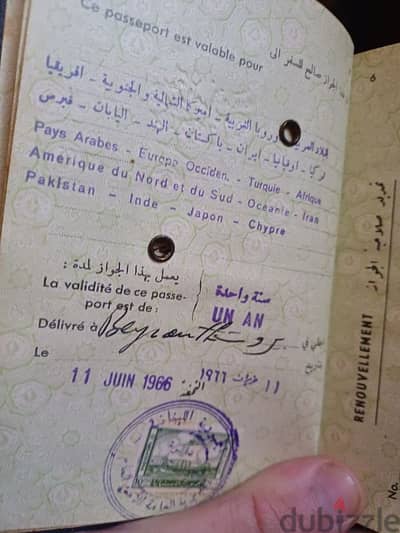 Ce passeport est valable pour
هذا الجواز صالح للسفر الى
البلاد العربية - اوروبا الغربية - اميركا الشمالية والجنوبية - افريقيا
تركيا - اوقيانيا - ايران - باكستان - الهند - اليابان - قبرص
Pays Arabes - Europe Occiden. - Turquie - Afrique
Amérique du Nord et du Sud - Oceanie - Iran
Pakistan - Inde - Japon - Chypre
يعمل بهذا الجواز لمدة :
La validité de ce passe-
port est de :
سنة واحدة
UN AN
Délivré à Beyrouth
اعطي في
Le
بتاريخ
11 JUIN 1966
١١ حزيران ١٩٦٦
6
تجديد صلاحية الجواز
RENOUVELLEMENT
No.
dubizzle